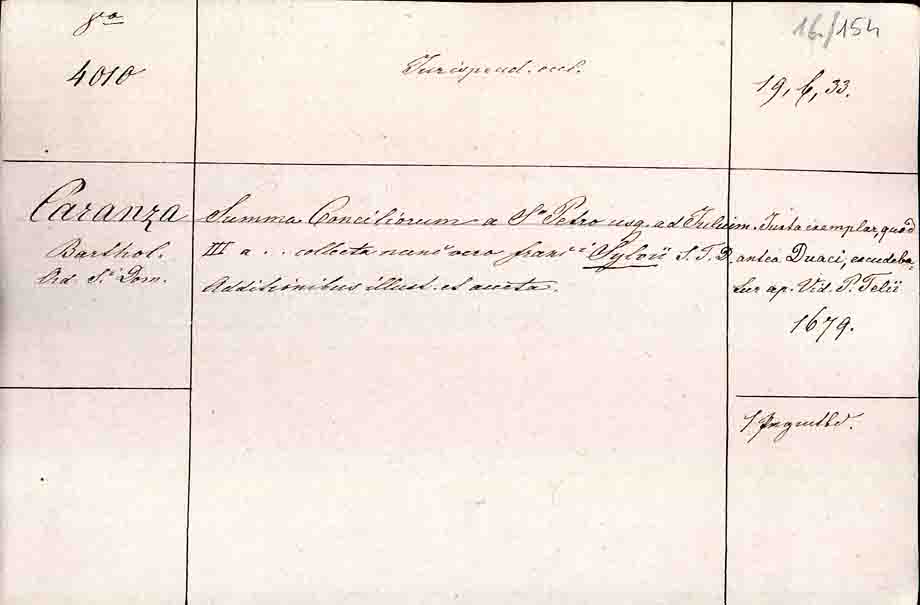 8vo
16./154
4010
Jurisprud. eccl.
19, 6, 33.
Caranza
Summa Conciliorum a Sto Petro usq. ad Julium
Juxta exemplar, quod
Barthol.
III a .. collecta nunc vero franci Sylvii S. T. D.
antea Duaci, excudeba-
Ord. Sti Dom.
Additionibus illust. et aucta.
tur ap. Vid. P. Telii
1679.
1